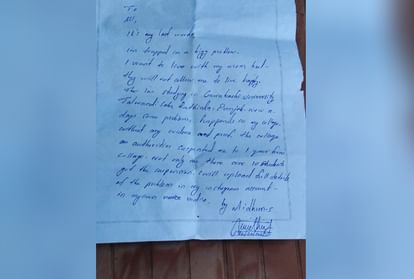 To
All,
It's my last words
im trapped in a bigg problem.
I want to live with my mom but
they will not allow me to live happy.
studying in University
Talwandi Sabo Bathinda. Punjab now a
days some problem happends in my college,
without any evidence and proof the college
authorities suspended me to 1 year from
college. not only me there are 10 students
got the suspension. i will upload full details
of the problem in my instagram account
in my own voice
by